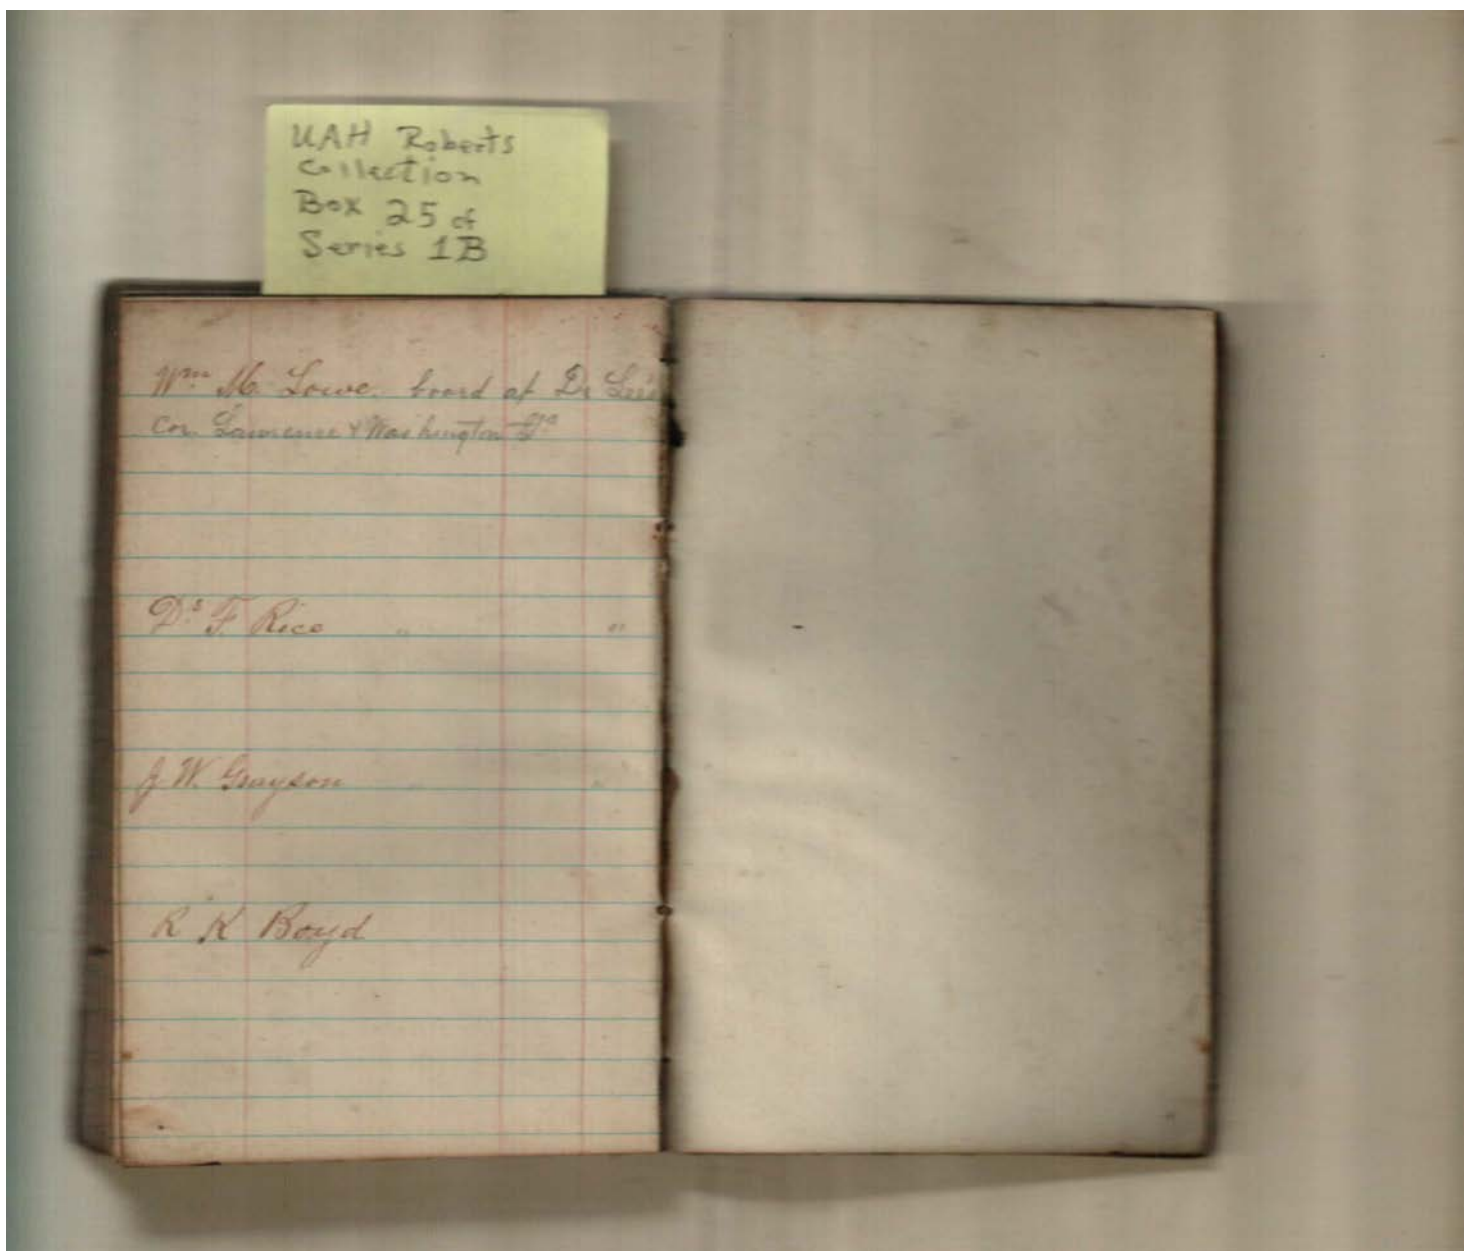 UAH Roberts
Collection
Box 25 of
Series 1B
Wm M. Lowe. board at Dr
Cor. Lawrence & Washington Sts
Ds F. Rice " "
J. W. Grayson "
R K Boyd